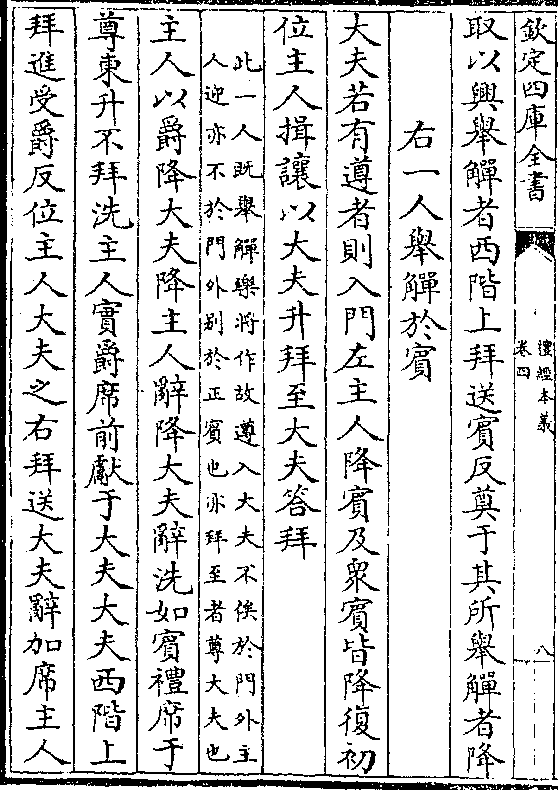 欽定四庫全書
禮經本義
卷四
八
取以興舉觶者西階上拜送賓反奠于其所舉觶者降
右一人舉觶於賓
大夫若有遵者則入門左主人降賓及衆賓皆降復初
位主人揖讓以大夫升拜至大夫答拜
此一人既舉觶樂將作故遵入大夫不俟於門外主
人迎亦不於門外别於正賓也亦拜至者尊大夫也
主人以爵降大夫降主人辭降大夫辭洗如賓禮席于
尊東升不拜洗主人實爵席前獻于大夫大夫西階上
拜進受爵反位主人大夫之右拜送大夫辭加席主人